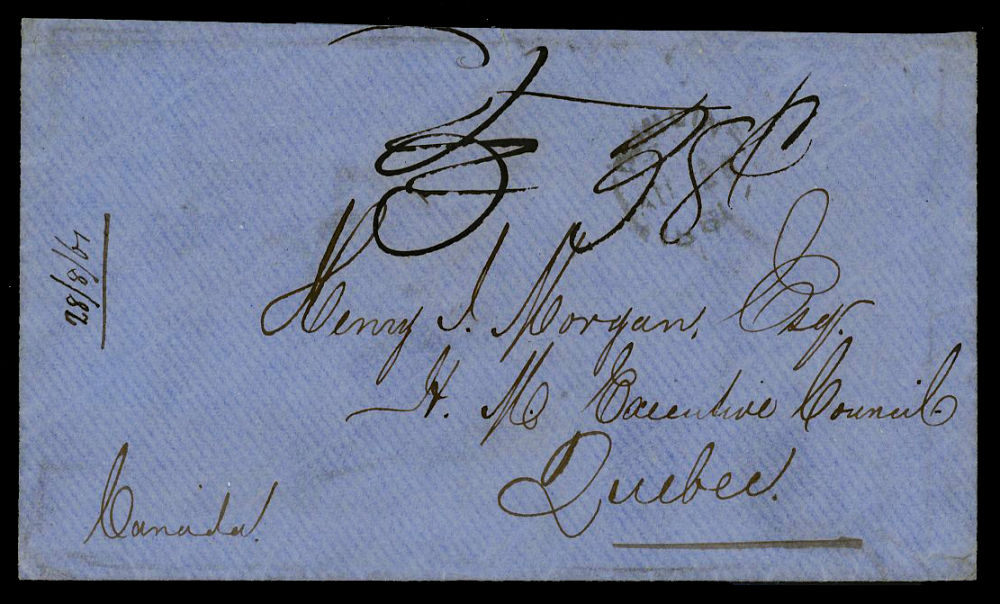 38¢
Henry J. Morgan, Esqr.
H. M. Executive Council.
Quebec.
Canada.
28/8/61